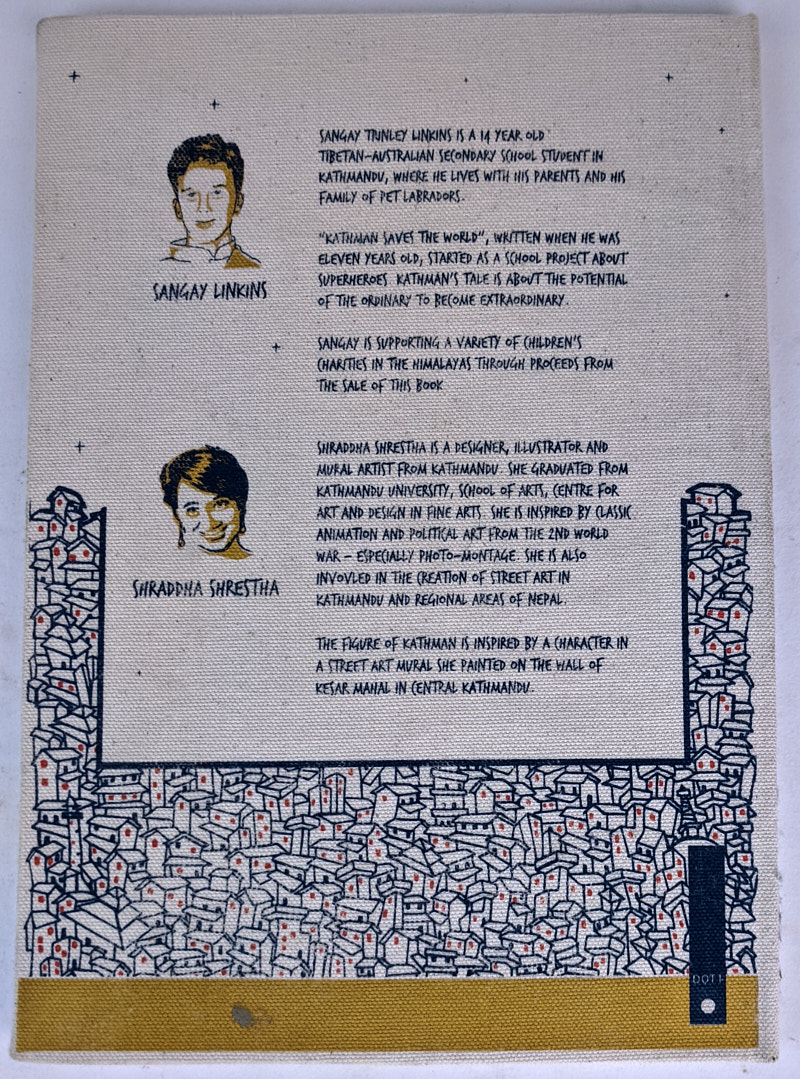 SANGAY TRINLEY LINKINS IS A 14 YEAR OLD
TIBETAN-AUSTRALIAN SECONDARY SCHOOL STUDENT IN
KATHMANDU, WHERE HE LIVES WITH HIS PARENTS AND HIS
FAMILY OF PET LABRADORS.
"KATHMAN SAVES THE WORLD", WRITTEN WHEN HE WAS
ELEVEN YEARS OLD, STARTED AS A SCHOOL PROJECT ABOUT
SUPERHEROES. KATHMAN'S TALE IS ABOUT THE POTENTIAL
OF THE ORDINARY TO BECOME EXTRAORDINARY.
SANGAY IS SUPPORTING A VARIETY OF CHILDREN'S
CHARITIES IN THE HIMALAYAS THROUGH PROCEEDS FROM
THE SALE OF THIS BOOK
SANGAY LINKINS
SHRADDHA SHRESTHA IS A DESIGNER, ILLUSTRATOR AND
MURAL ARTIST FROM KATHMANDU. SHE GRADUATED FROM
KATHMANDU UNIVERSITY, SCHOOL OF ARTS, CENTRE FOR
ART AND DESIGN IN FINE ARTS. SHE IS INSPIRED BY CLASSIC
ANIMATION AND POLITICAL ART FROM THE 2ND WORLD
WAR - ESPECIALLY PHOTO-MONTAGE. SHE IS ALSO
INVOVLED IN THE CREATION OF STREET ART IN
KATHMANDU AND REGIONAL AREAS OF NEPAL.
THE FIGURE OF KATHMAN IS INSPIRED BY A CHARACTER IN
A STREET ART MURAL SHE PAINTED ON THE WALL OF
KESAR MAHAL IN CENTRAL KATHMANDU.
SHRADDHA SHRESTHA